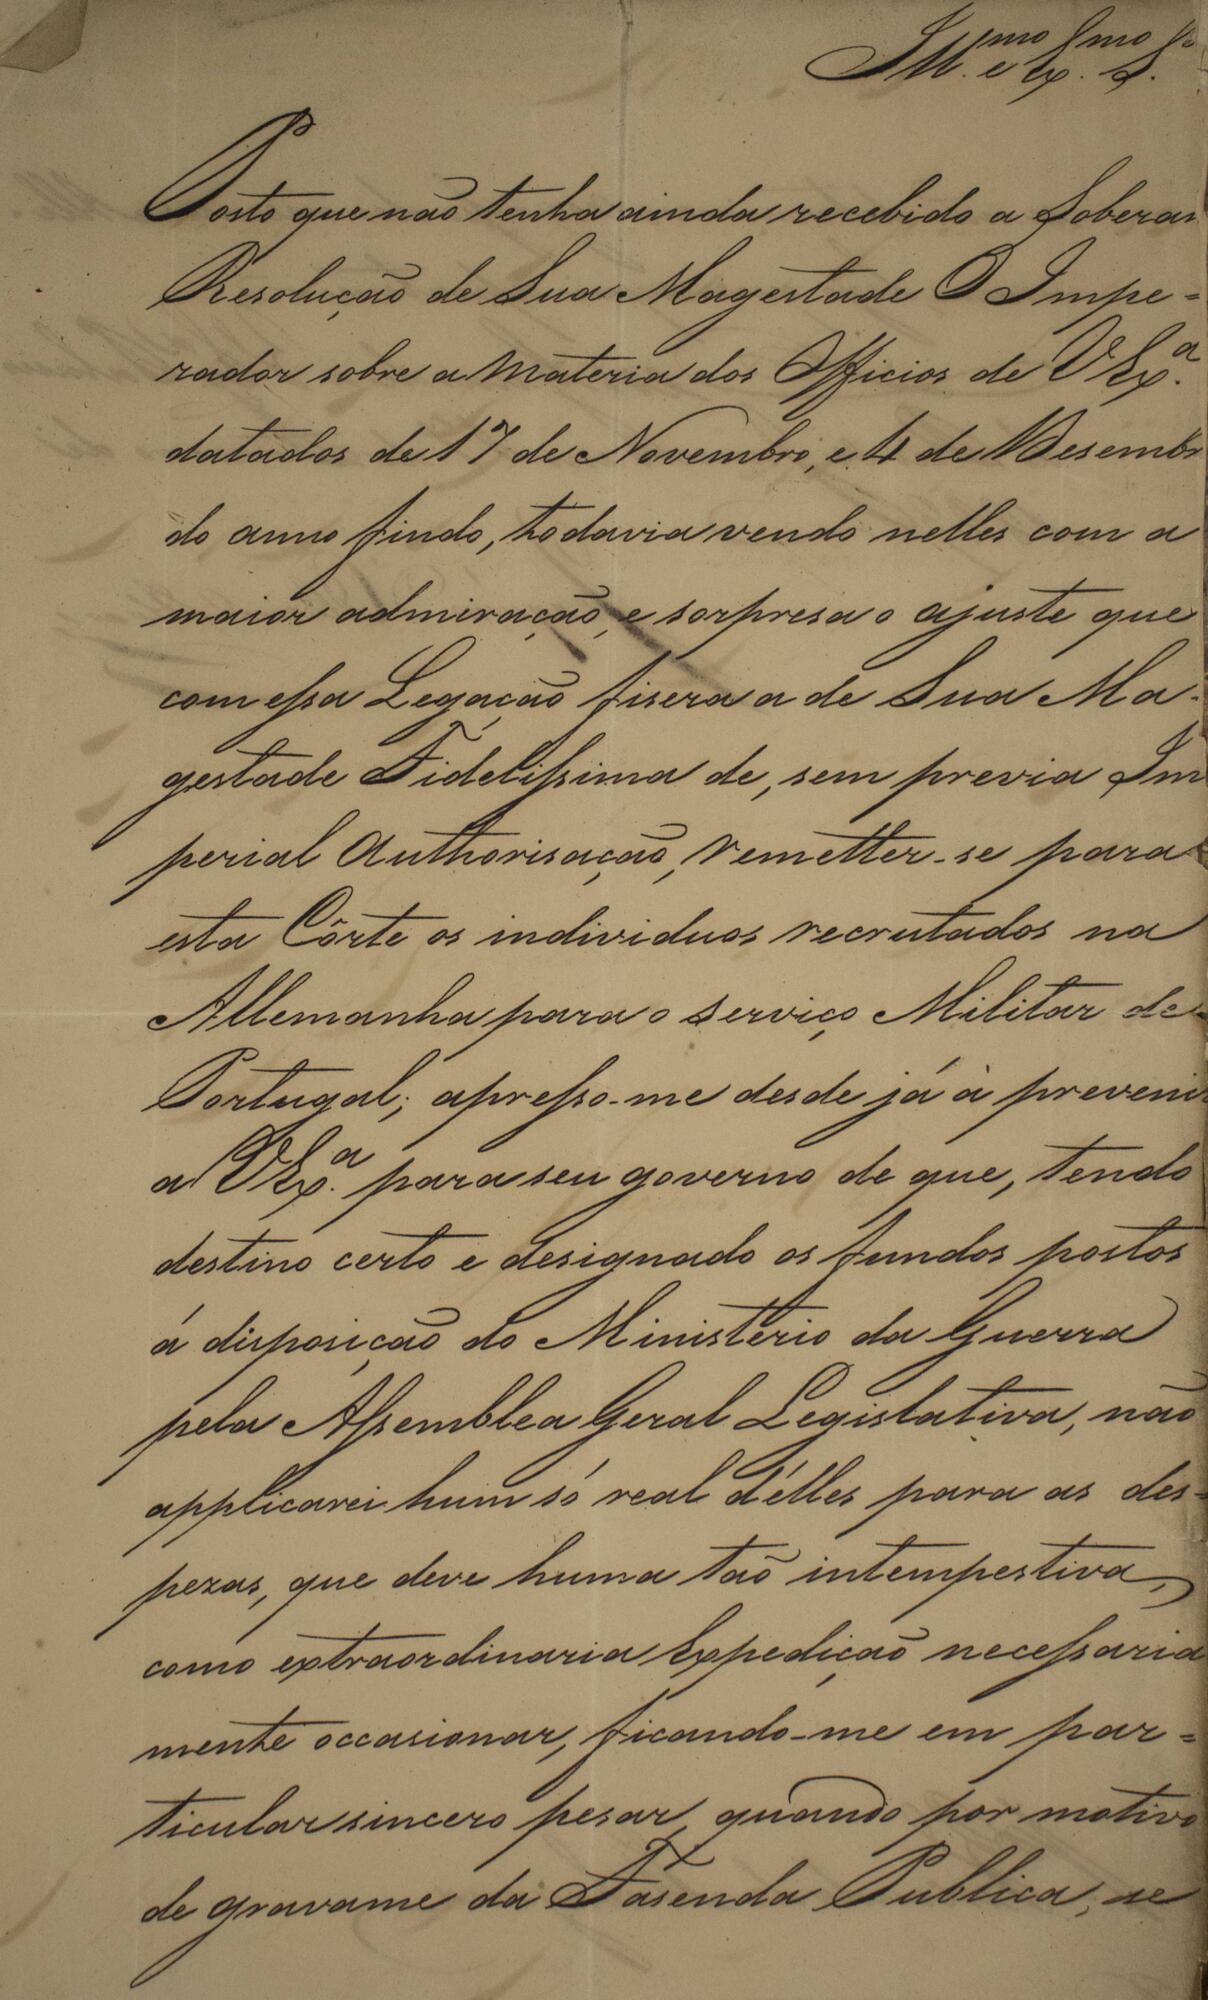 Ill.mo e Ex.mo S.r
Posto que não tenha ainda recebido a Soberan
Resolução de Sua Magestade O Impe-
rador sobre a materia dos Officios de V Ex.a
datados de 17 de Novembro, e 4 de Desembr
do anno findo, todavia vendo nelles com a
maior admiração, e sorpresa o ajuste que
com essa Legação fisera a de Sua Ma-
gestade Fidelissima de, sem previa Im
perial Authorisação, remetter-se para
esta Côrte os individuos recrutados na
Allemanha para o serviço Militar de
Portugal; apresso-me desde já à preveni
a V Ex.a para seu governo de que, tendo
destino certo e designado os fundos postos
á disposição do Ministerio da Guerra
pela Assemblea Geral Legislativa, não
applicarei hum só real d'élles para as des-
pezas, que deve huma taõ intempestiva,
como extraordinaria Expedição necessaria
mente occasionar, ficando-me em par-
ticular sincero pesar, quando por motivo
de gravame da Fasenda Publica, se